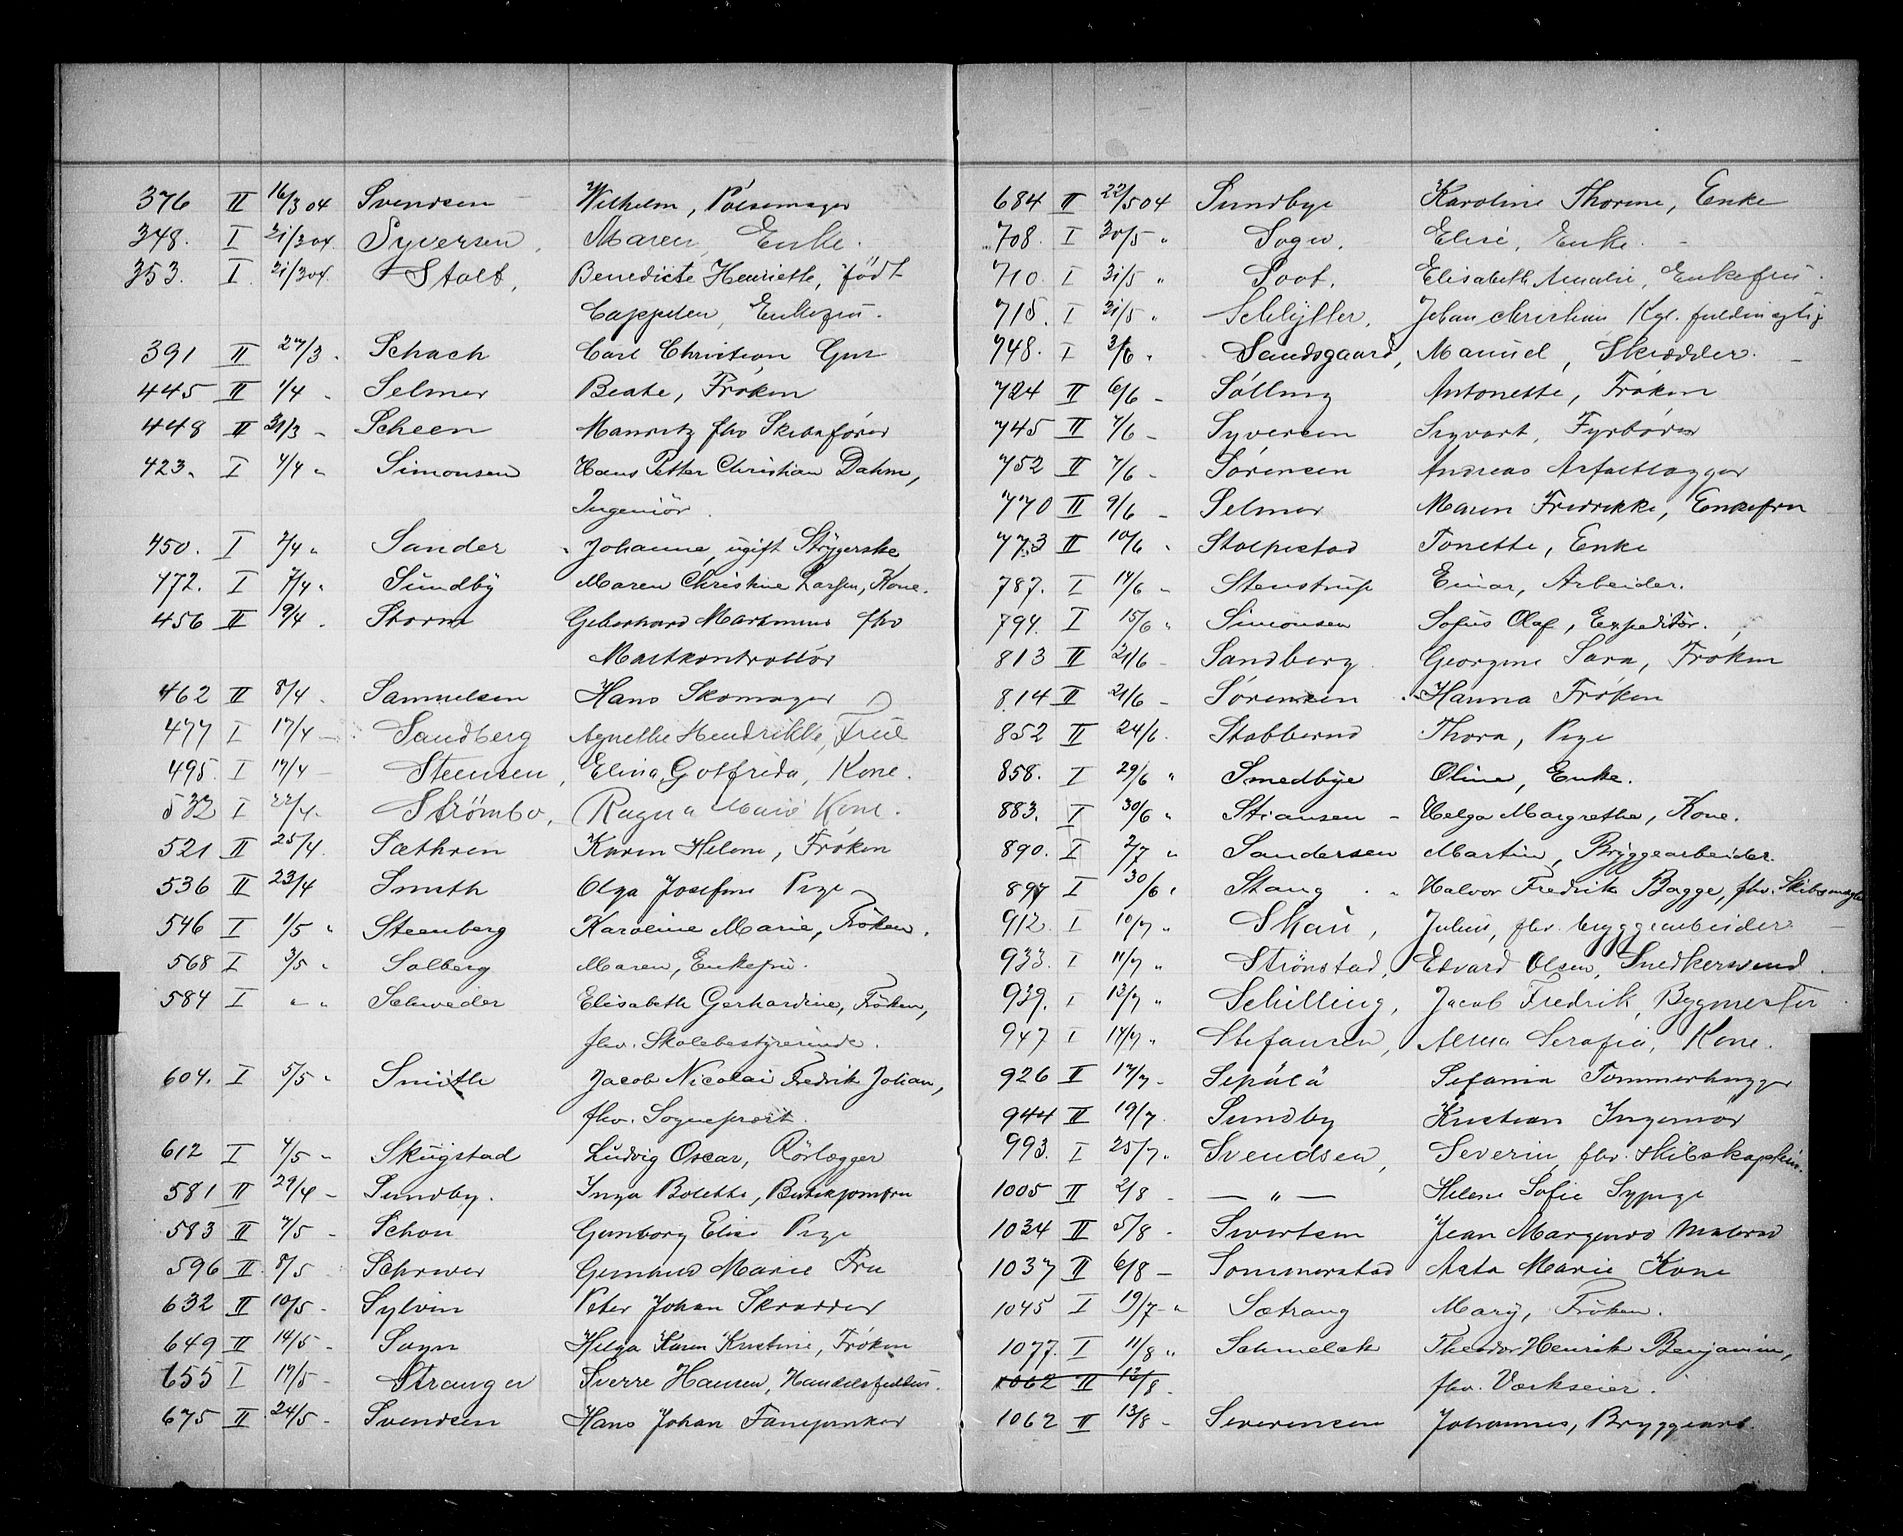 376 II 16/3 04 Svendsen Wilhelm, Pölsemager
348. I 21/3 04. Syversen, Maren, Enke.
353. I. 21/3 04. Stolt, Benedicte Henriette, födt
Cappelen, Enkefru.
391 II 27/3 - Schach Carl Christian Gus
445 II 1/4 - Selmer Beate, Frøken
448 II 31/3 - Scheen Mauritz fhv Skibsfører
423. I 4/4 " Simonsen Hans Petter Christian Dahm,
Ingeniör.
450. I 2/4 " Sander Johanne, ugift Strygerske
472. I 7/4 " Sundby Maren Christine Larsen, Kone.
456 II 19/4 - Storm Geberhard Martinius fhv
Mastkontrollör
462 II 8/4 - Samuelsen Hans Skomager
477 I 17/4 - Sandberg Agnethe Hendrikke, Frue
495. I 17/4 - Steensen, Elina Gotfrida, Kone.
532 I 22/4 - Strömbo, Ragna Marie Kone.
521 II 25/4 Sæthren Karen Helene, Frøken
536 II 23/4 Smith Olga Josefine Pige
546 I 1/5 " Steenberg Karoline Marie, Fröken.
568 I 3/5 " Solberg Maren, Enkefru.
584 I " " Schweder Elisabeth Gerhardine, Fröken,
fhv. Skolebestyrerinde.
604. I 5/5 " Smith Jacob Nicolai Fredrik Johan,
fhv. Sogneprest.
612 I 4/5 " Skugstad Ludvig Oscar, Rörlægger
581 II 29/4 - Sundby. Inga Bolette, Butikjomfru
583 II 7/5 - Schou Gunborg Elise Pige
596 II 8/5 Schriwer Gunhild Marie Fru
632 II 10/5 - Sylvin Peter Johan Skrædder
649 II 14/5 - Sogn Helga Karen Kristine, Frøken
655 I 17/5 - Stranger Sverre Hansen, Handelsfuldm.
675 II 24/5 - Svendsen Hans Johan
684 II 22/5 04 Sundbye Karoline Thorine, Enke
708. I 30/5 " Sogn, Elise, Enke.
710. I 31/5 " Soot, Elisabeth Amalie, Enkefru.
715. I 31/5 " Schlytter, Johan Christian Kgl. fuldmægtig
748. I 3/6 " Sandsgaard, Manuel, Skrædder.
724 II 6/6 - Sölling Antonette, Frøken
745 II 7/6 - Syversen Sigvart, Fyrbøder
752 II 7/6 - Sørensen Andreas Asfaltlægger
770 II 9/6 - Selmer Maren Fredrikke, Enkefru
773 II 10/6 " Stolpestad Tonette, Enke
787. I 14/6 " Stenstrup Einar, Arbeider.
794. I 15/6 " Simonsen Sofus Olaf, Expeditör.
813 II 21/6 - Sandberg Georgine Sara, Frøken
814 II 21/6 - Sørensen Hanna Frøken
852 II 24/6. Stabberud Thora, Pige
858. I 29/6 " Smedbye Oline, Enke.
883. I 30/6 " Stiansen - Helga Margrethe, Kone.
890. I 2/7 " Sandersen Martin, Bryggearbeider.
897 I 30/6 " Stang Halvor Fredrik Bagge, fhv. Skibsmægler
912. I 10/7 " Skau, Julius, fhv. bryggearbeider
933. I 11/7 " Strönstad, Edvard Olsen, Snedkersvend.
939. I 13/7 " Schilling, Jacob Fredrik, Bygmester
947 I 14/7 " Stefansen, Alma Serafia, Kone.
926 II 17/7 - Sepälä Sefania Tømmerhugger
944 II 19/7. Sundby Kristian Ingeniør
993. I 25/7 " Svendsen, Severin, fhv. skibskaptein.
1005 II 2/8 - — " — Helene Sofie Sypige
1034 II 5/8 - Sivertsen Jean Malersv
1037 II 6/8 - Sommerstad Asta Marie Kone
1045 I 19/7 - " Sætrang Mary, Fröken.
1077. I 11/8 " Schmelck Theodor Henrik Benjamin,
1062 II 12/8. fhv. Værkseier.
1062 II 13/8 - Severensen Johannes, Bryggearb.